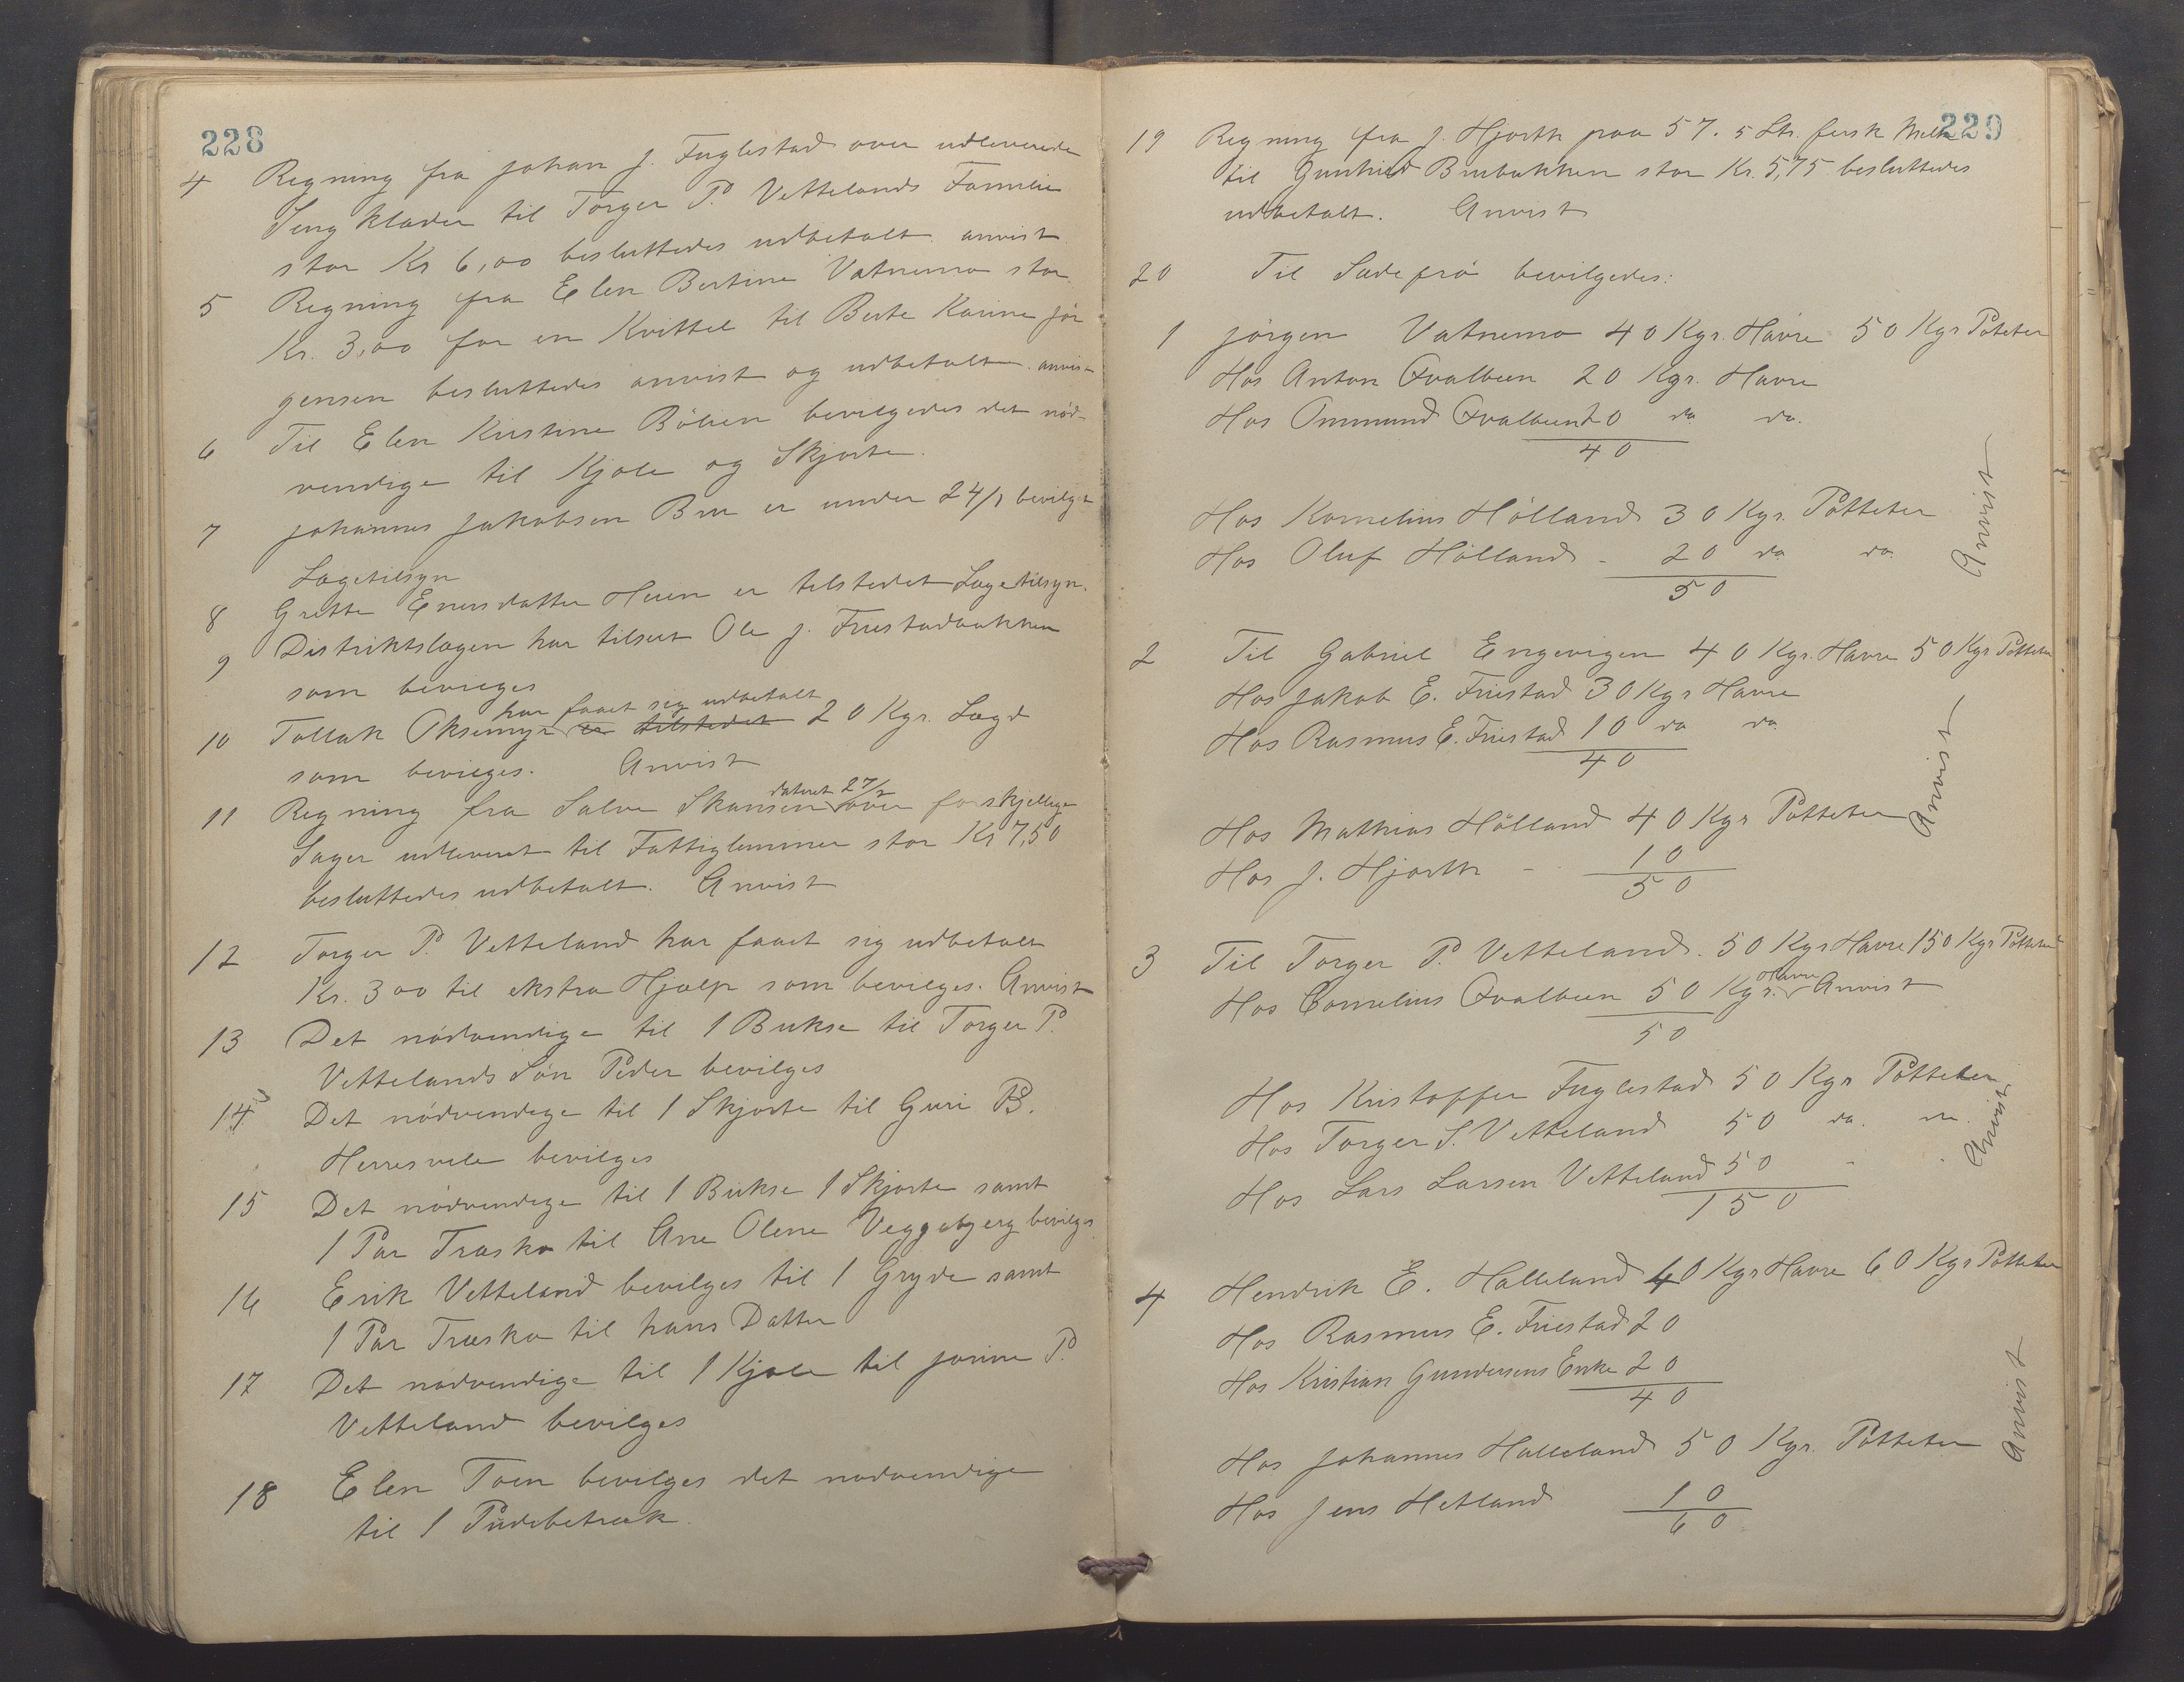 228
4 Regning fra Johan J. Fuglestad over udleverede
Sengklæder til Torger P. Vettelands Familie
stor Kr 6,00 besluttedes udbetalt. anvist
5 Regning fra Elen Bertine Vatnemo stor
Kr. 3,00 for en Kvittel til Berte Karine Jör
gensen besluttedes anvist og udbetalt. anvist
6 Til Elen Kristine Bölien bevilgedes det nöd-
vendige til Kjole og Skjorte.
7 Johannes Jakobsen Bru er under 24/1 bevilget
Lægetilsyn
8 Gritte Enersdatter Heien er tilstedet Lægetilsyn.
9 Distriktslægen har tilseet Ole J. Friestadbakken
som bevilges
har faaet sig udbetalt
10 Tollak Oksemyr er tilstedet 20 Kgr. Lægd
som bevilges. Anvist
dateret 27/2
11 Regning fra Salve Skansen over forskjellige
Sager udleveret til Fattiglemmer stor Kr 7,50
besluttedes udbetalt. Anvist
12 Torger P. Vetteland har faaet sig udbetalt
Kr. 3 00 til ekstra Hjælp som bevilges. Anvist
13 Det nödvendige til 1 Bukse til Torger P.
Vettelands Sön Peder bevilges
14 Det nödvendige til 1 Skjorte til Guri B.
Herresvele bevilges
15 Det nödvendige til 1 Bukse 1 Skjorte samt
1 Par Træsko til Ane Olene Veggebjerg bevilges
16 Erik Vetteland bevilges til 1 Gryde samt
1 Par Træsko til hans Datter
17 Det nödvendige til 1 Kjole til Jorine P.
Vetteland bevilges
18 Elen Toen bevilges det nødvendige
til 1 Pudebetræk.
229
19 Regning fra J. Hjorth paa 57.5 Ltr. fersk Melk
til Gunhild Brubakken stor Kr. 5,75 besluttedes
udbetalt. Anvist
20 Til Sædefrö bevilgedes:
1 Jörgen Vatnemo 40 Kgr. Havre 50 Kgr Poteter
Hos Anton Qvalbein 20 Kgr. Havre
Hos Ommund Qvalbein 20 do do.
40
Hos Kornelius Hölland 30 Kgr. Potteter
Hos Oluf Hölland - 20 do do.
50
Anvist
2 Til Gabriel Engevigen 40 Kgr. Havre 50 Kgr Potteter
Hos Jakob E. Friestad 30 Kgr Havre
Hos Rasmus E. Friestad 10 do do.
40
Hos Mathias Hölland 40 Kgr Potteter
Hos J. Hjorth - 10
50
Anvist
3 Til Torger P. Vetteland. 50 Kgr Havre 150 Kgr Potteter
Hos Cornelius Qvalbein 50 Kgr. Havre Anvist
50
Hos Kristoffer Fuglestad 50 Kgr Potteter
Hos Torger S. Vetteland 50 do. do.
Hos Lars Larsen Vetteland 50 - -
150
Anvist
4 Hendrik E. Halleland 40 Kgr Havre 60 Kgr Potteter
Hos Rasmus E. Friestad 20
Hos Kristian Gundersens Enke 20
40
Hos Johannes Halleland 50 Kgr. Potteter
Hos Jens Hetland 10
60
Anvist